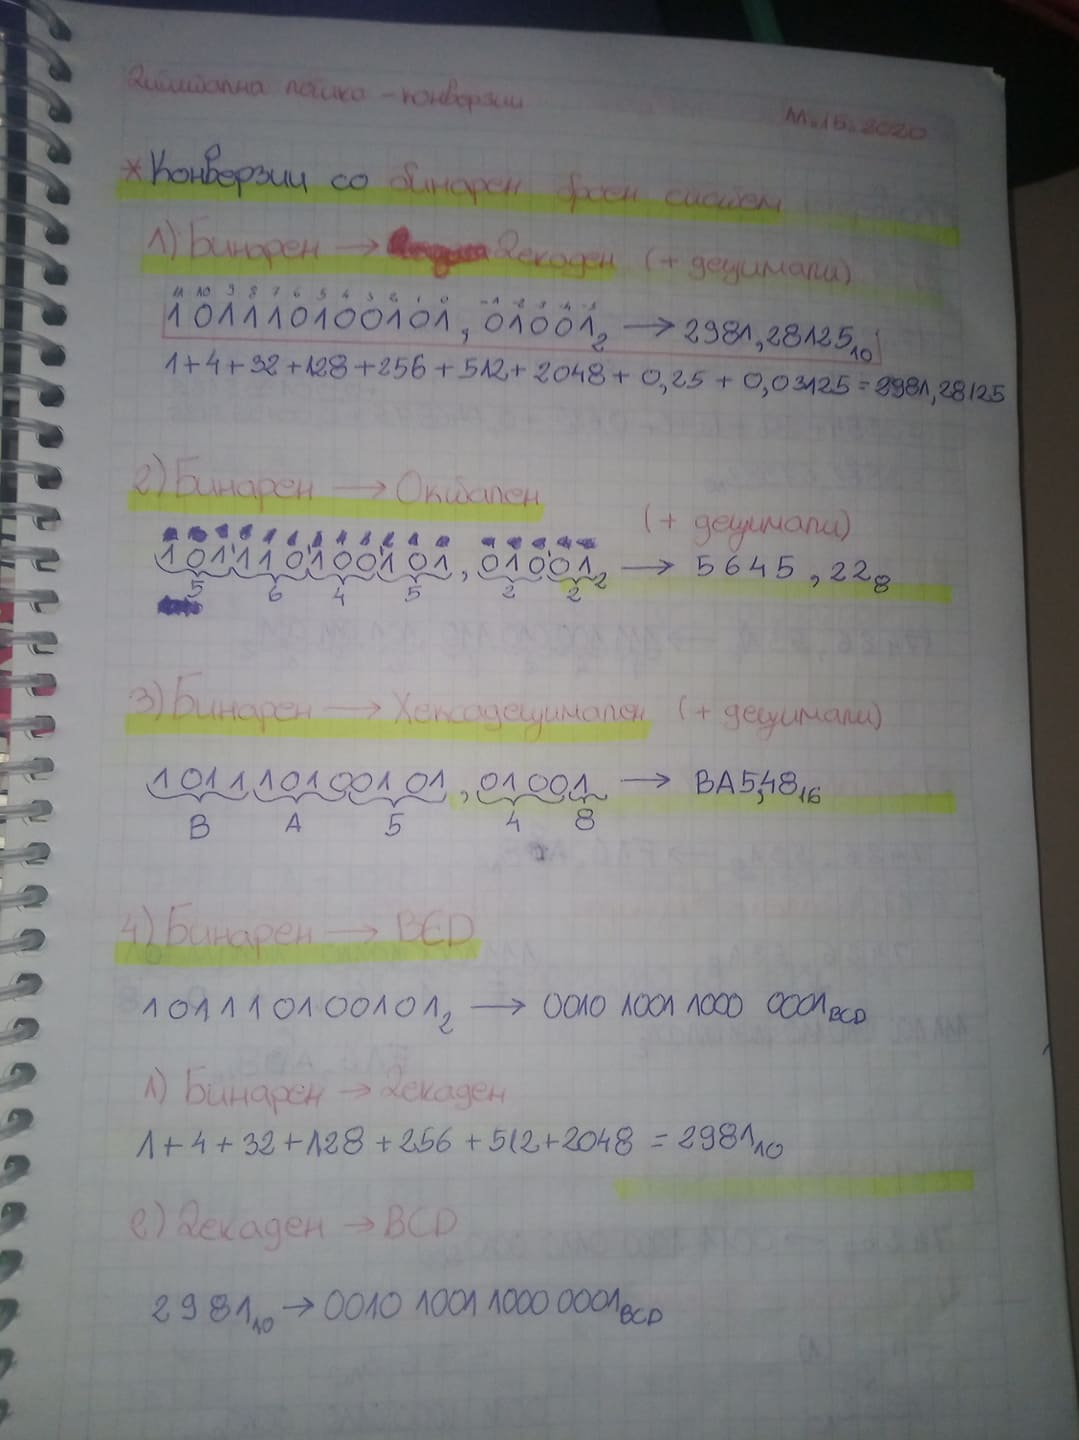 Дигитална логика - конверзии
11.15.2020
*Конверзии со бинарен броен систем
1) Бинарен → Декаден (+ децимали)
11 10 9 8 7 6 5 4 3 2 1 0 -1 -2 -3 -4 -5
101110100101,01001₂ → 2981,28125₁₀
1+4+32+128+256+512+2048+0,25+0,03125=2981,28125
2) Бинарен → Октален (+ децимали)
101110100101,01001₂ → 5645,22₈
5 6 4 5 2 2
3) Бинарен → Хексадецимален (+ децимали)
101110100101,01001 → BA5,48₁₆
B A 5 4 8
4) Бинарен → BCD
101110100101₂ → 0010 1001 1000 0001BCD
1) Бинарен → Декаден
1+4+32+128+256+512+2048 = 2981₁₀
2) Декаден → BCD
2981₁₀ → 0010 1001 1000 0001BCD